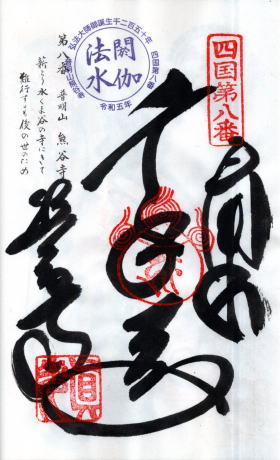 四国第八番
奉拝
千手大士
熊谷寺
弘法大師御誕生千二百五十年
四国第八番
閼伽
法水
令和五年
第八番 普明山 熊谷寺
薪とり水くま谷の寺にきて
難行するも後の世のため